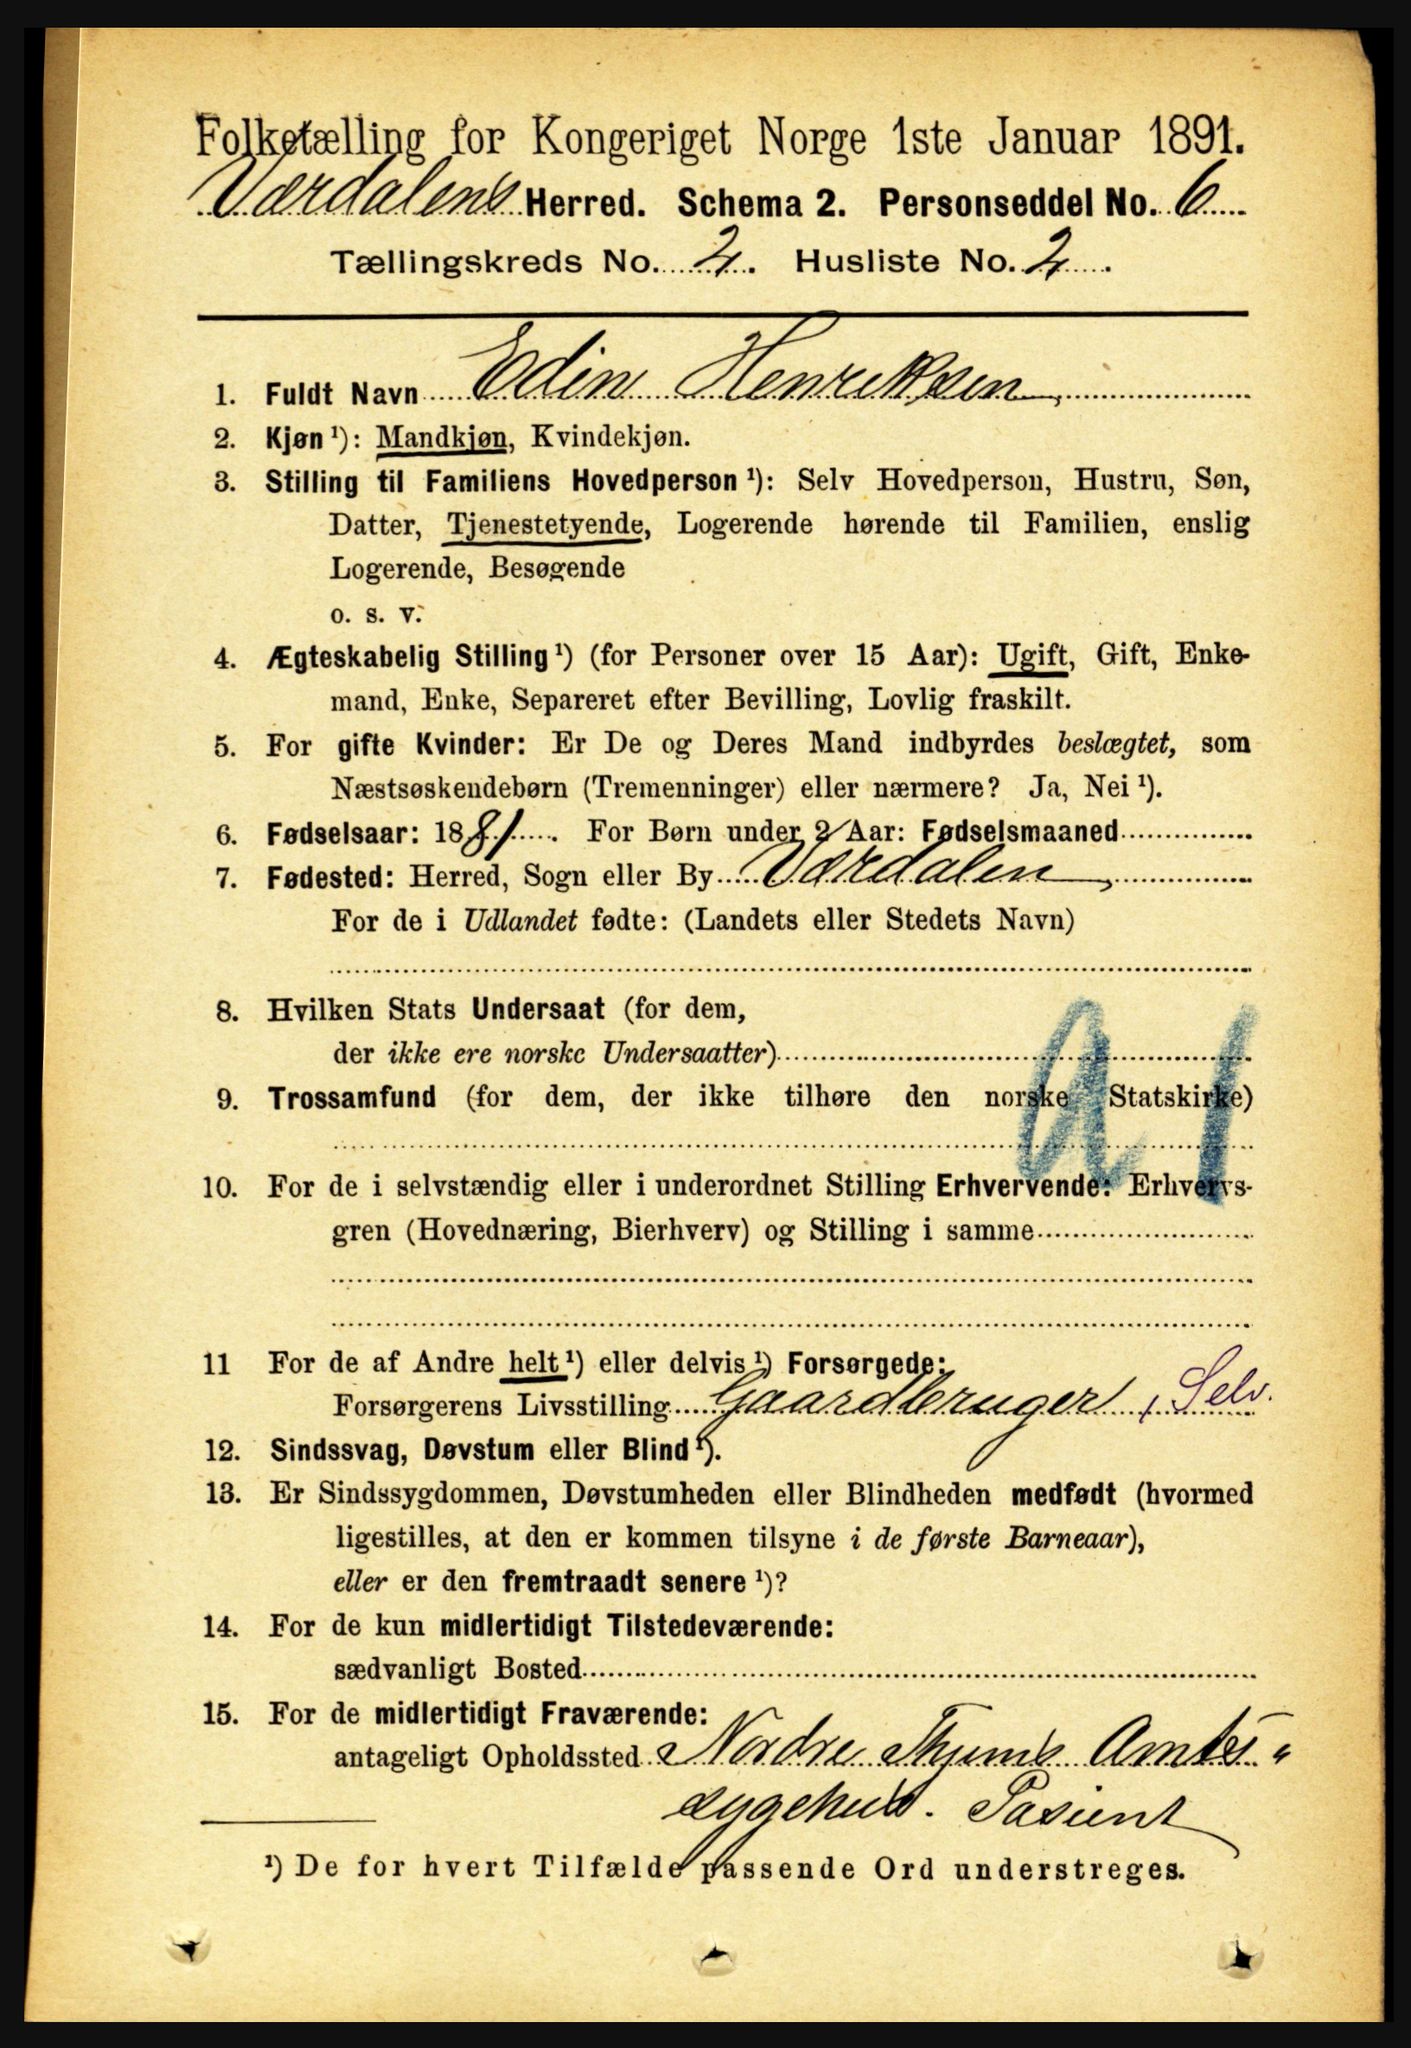 Folketælling for Kongeriget Norge 1ste Januar 1891.
Værdalens Herred. Schema 2. Personseddel No. 6
Tællingskreds No. 2. Husliste No. 2.
1. Fuldt Navn Edin Henriksen,
2. Kjøn ¹): Mandkjøn, Kvindekjøn.
3. Stilling til Familiens Hovedperson ¹): Selv Hovedperson, Hustru, Søn,
Datter, Tjenestetyende, Logerende hørende til Familien, enslig
Logerende, Besøgende
o. s. v.
4. Ægteskabelig Stilling ¹) (for Personer over 15 Aar): Ugift, Gift, Enke-
mand, Enke, Separeret efter Bevilling, Lovlig fraskilt.
5. For gifte Kvinder: Er De og Deres Mand indbyrdes beslægtet, som
Næstsøskendebørn (Tremenninger) eller nærmere? Ja, Nei ¹).
6. Fødselsaar: 1881. For Børn under 2 Aar: Fødselsmaaned
7. Fødested: Herred, Sogn eller By Værdalen,
For de i Udlandet fødte: (Landets eller Stedets Navn)
8. Hvilken Stats Undersaat (for dem,
der ikke ere norske Undersaatter)
9. Trossamfund (for dem, der ikke tilhøre den norske Statskirke)
a 1
10. For de i selvstændig eller i underordnet Stilling Erhvervende: Erhvervs-
gren (Hovednæring, Bierhverv) og Stilling i samme
11 For de af Andre helt ¹) eller delvis ¹) Forsørgede:
Forsørgerens Livsstilling Gaardbruger, Selv.
12. Sindssvag, Døvstum eller Blind ¹).
13. Er Sindssygdommen, Døvstumheden eller Blindheden medfødt (hvormed
ligestilles, at den er kommen tilsyne i de første Barneaar),
eller er den fremtraadt senere ¹)?
14. For de kun midlertidigt Tilstedeværende:
sædvanligt Bosted
15. For de midlertidigt Fraværende:
antageligt Opholdssted Nordre Thjems Amts "
sygehus. Pasient
¹) De for hvert Tilfælde passende Ord understreges.